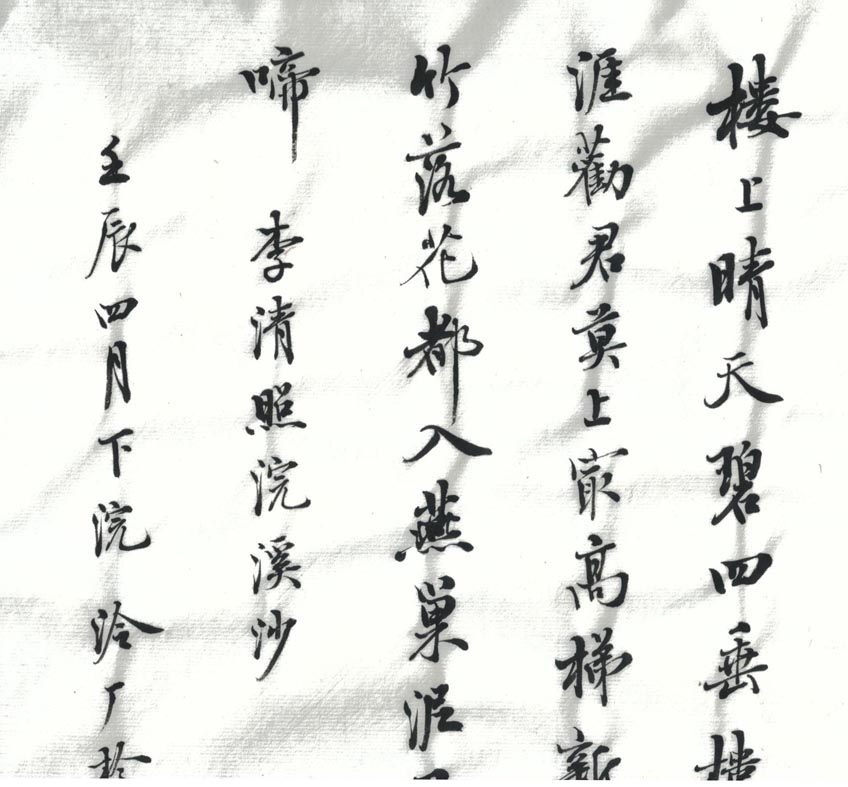 楼上晴天碧四垂楼
涯劝君莫上最高梯新
竹落花都入燕巢泥
啼 李清照浣溪沙
壬辰四月下浣 洽丁